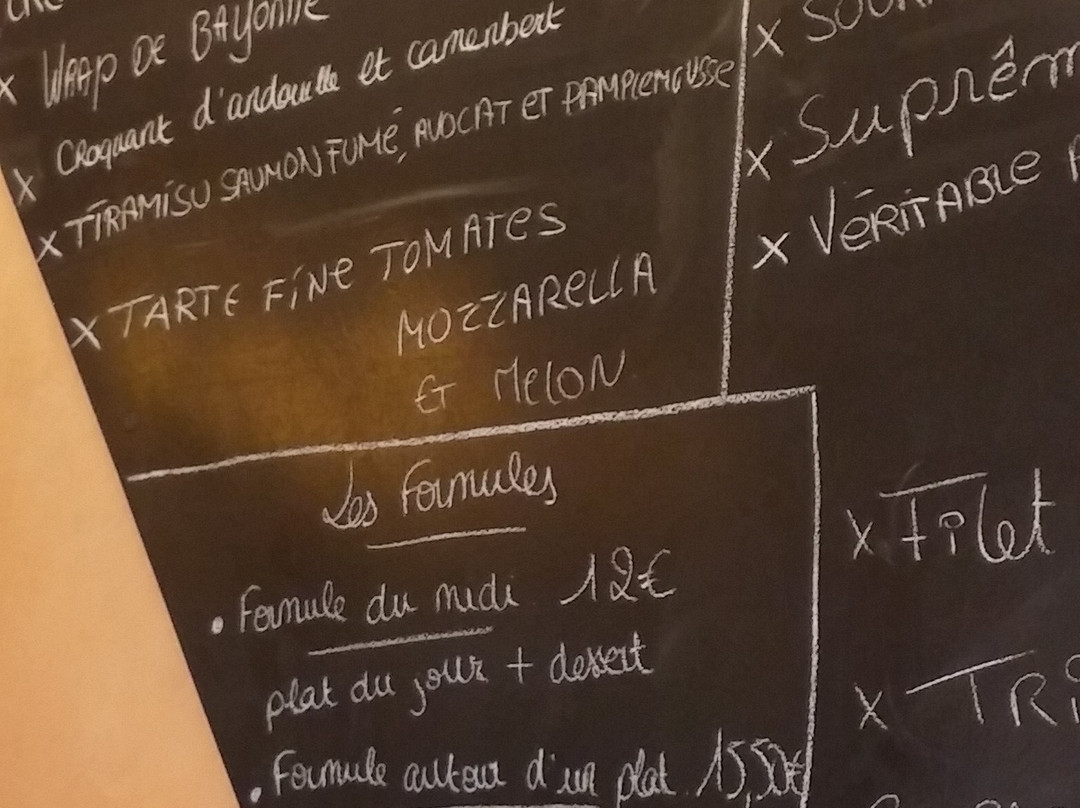 x WRAP DE BAYONNE
x Croquant d'andouille et camenbert
x TIRAMISU SAUMON FUMÉ, AVOCAT ET PAMPLEMOUSSE
x TARTE FINE TOMATES
MOZZARELLA
ET MELON
Les Formules
• Formule du midi 12€
plat du jour + dessert
• Formule autour d'un plat 15,50€
x Suprêm
x VÉRITABLE
x Filet
x TRi